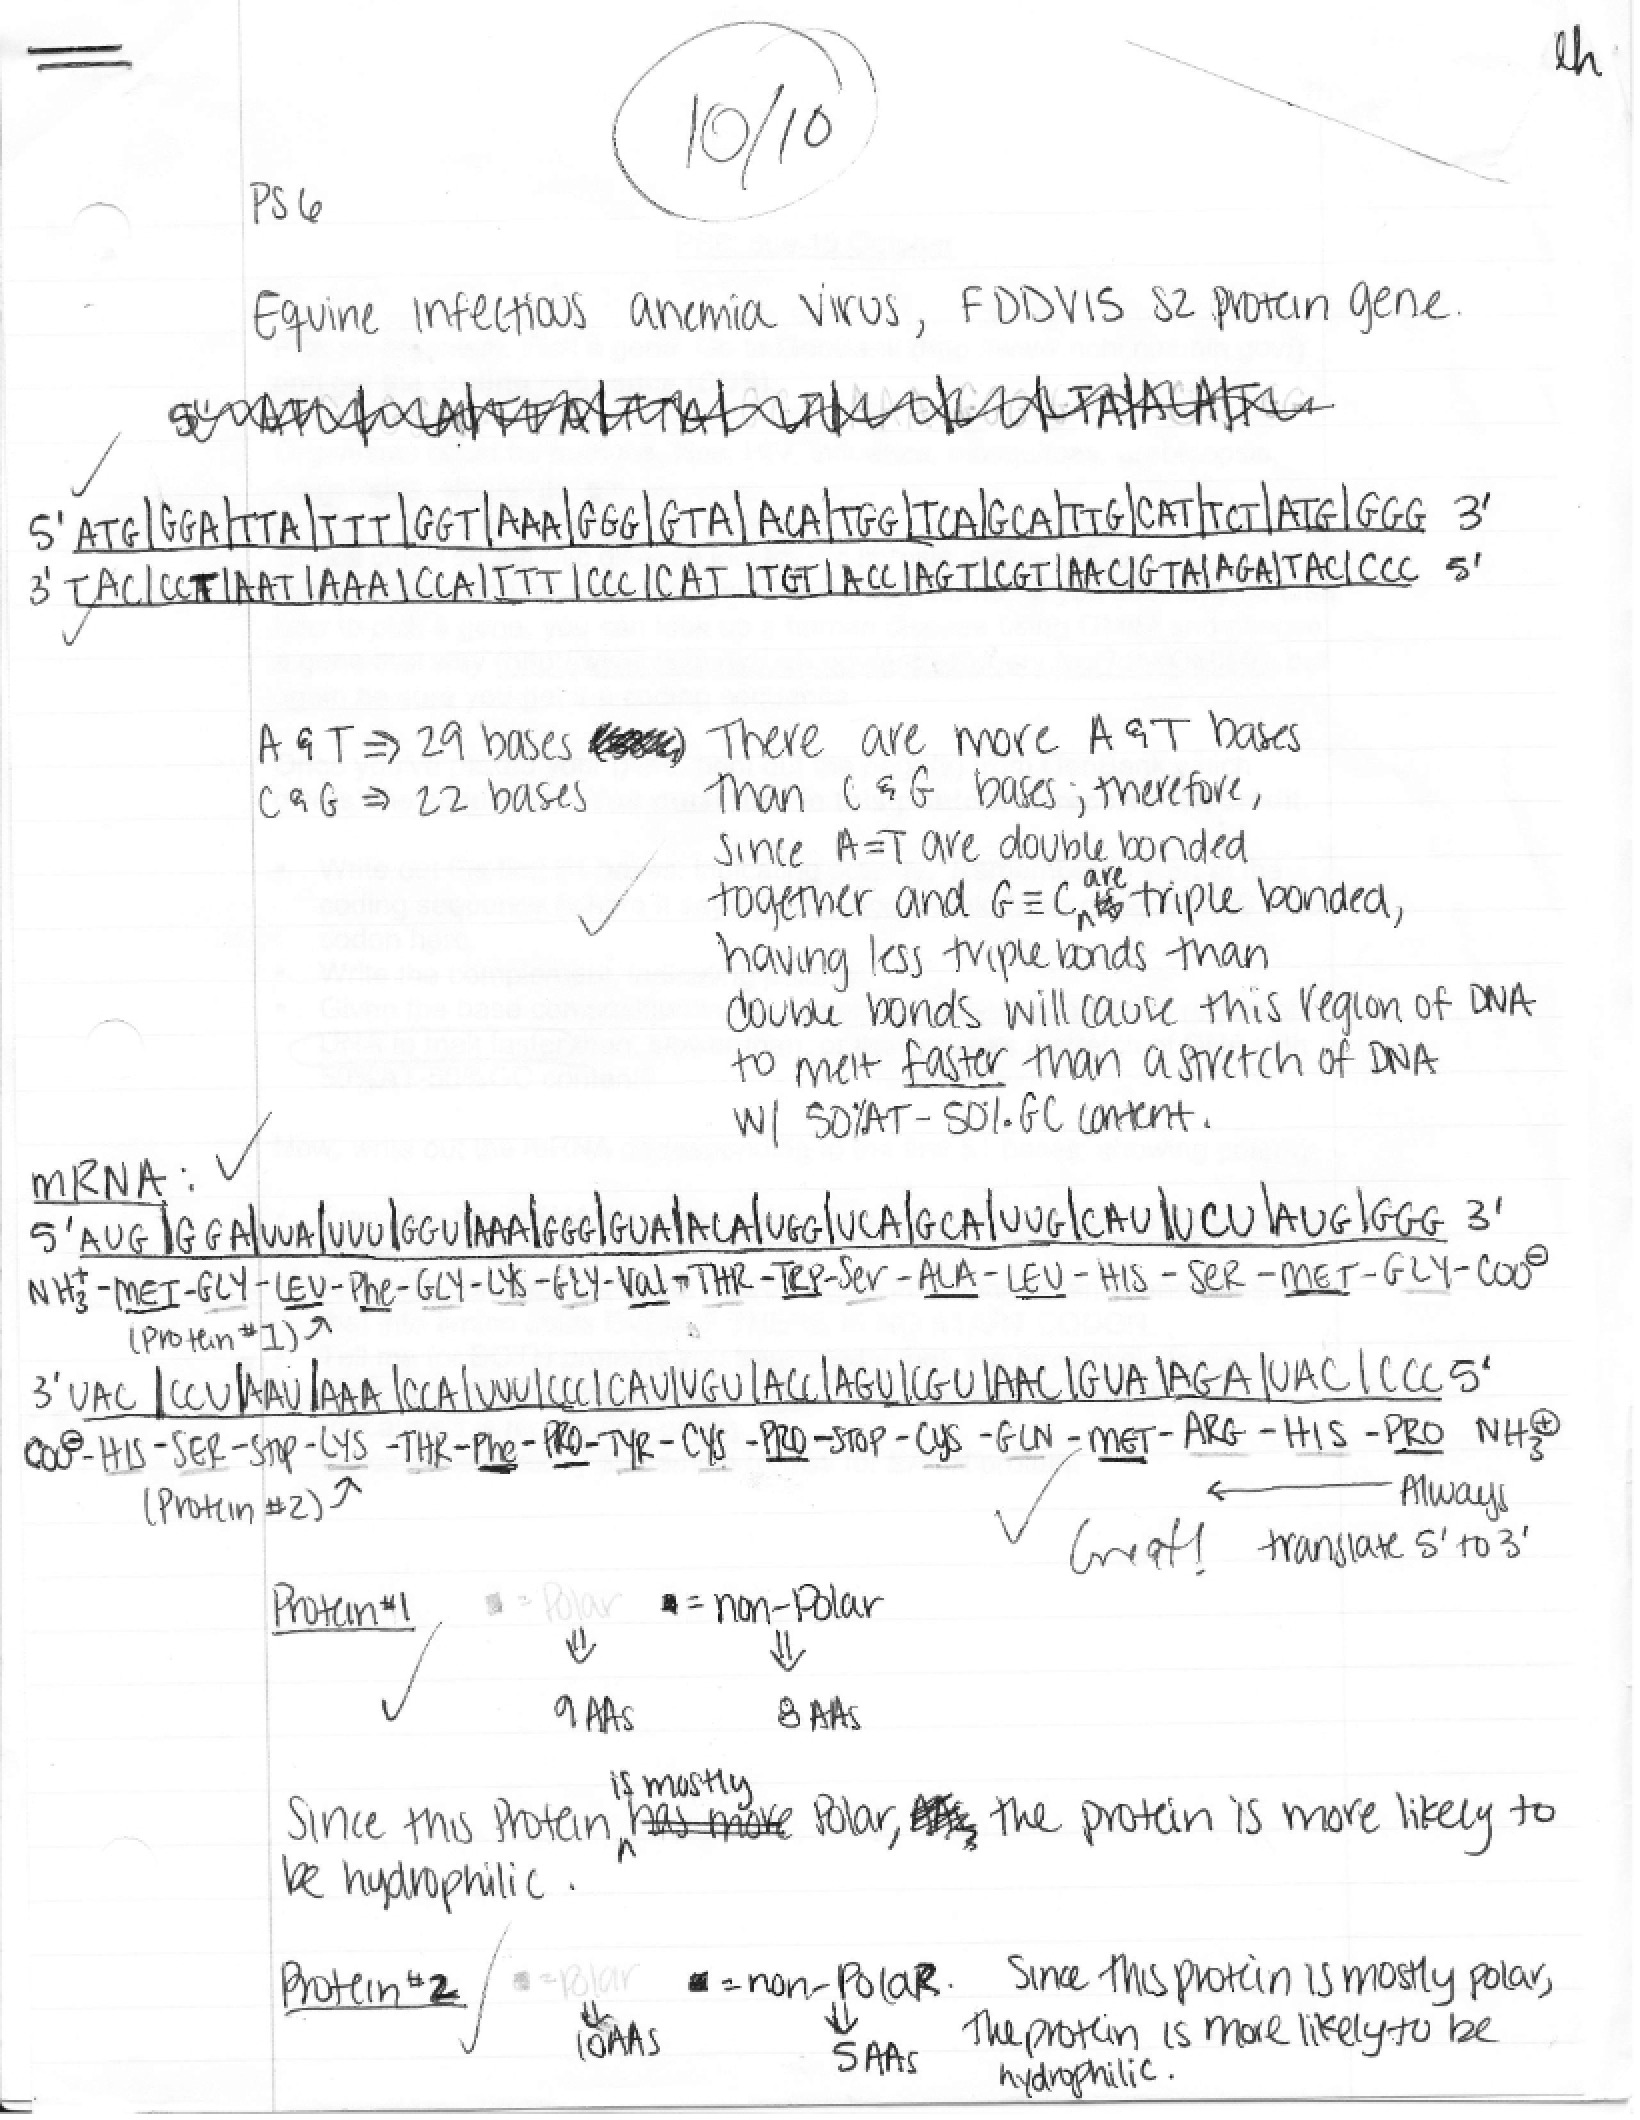 lh
10/10
PS6
Equine infectious anemia virus, FDDVIS S2 protein gene.
5' ATG|GGA|TTA|TTT|GGT|AAA|GGG|GTA|ACA|TGG|TCA|GCA|TTG|CAT|TCT|ATG|GGG 3'
3' TAC|CCT|AAT|AAA|CCA|TTT|CCC|CAT|TGT|ACC|AGT|CGT|AAC|GTA|AGA|TAC|CCC 5'
A & T ⇒ 29 bases
C & G ⇒ 22 bases
There are more A & T bases
than C & G bases; therefore,
since A=T are double bonded
together and G≡C are triple bonded,
having less triple bonds than
double bonds will cause this region of DNA
to melt faster than a stretch of DNA
w/ 50%AT-50%GC content.
mRNA:
5' AUG|GGA|UUA|UUU|GGU|AAA|GGG|GUA|ACA|UGG|UCA|GCA|UUG|CAU|UCU|AUG|GGG 3'
NH3+-MET-GLY-LEU-Phe-GLY-LYS-GLY-Val-THR-TRP-Ser-ALA-LEU-HIS-SER-MET-GLY-COO⊖
(Protein #1)↗
3' UAC|CCU|AAU|AAA|CCA|UUU|CCC|CAU|UGU|ACC|AGU|CGU|AAC|GUA|AGA|UAC|CCC 5'
COO⊖-HIS-SER-STOP-LYS-THR-Phe-PRO-TYR-CYS-PRO-STOP-CYS-GLN-MET-ARG-HIS-PRO NH3⊕
(Protein #2)↗
← Always
translate 5' to 3'
Great!
Protein #1
▪ = Polar ▪ = non-Polar
⇓ ⇓
9 AAs 8 AAs
Since this Protein is mostly has more Polar, the protein is more likely to
be hydrophilic.
Protein #2
▪ = Polar ▪ = non-Polar.
⇓ ⇓
10 AAs 5 AAs
Since this protein is mostly polar,
the protein is more likely to be
hydrophilic.